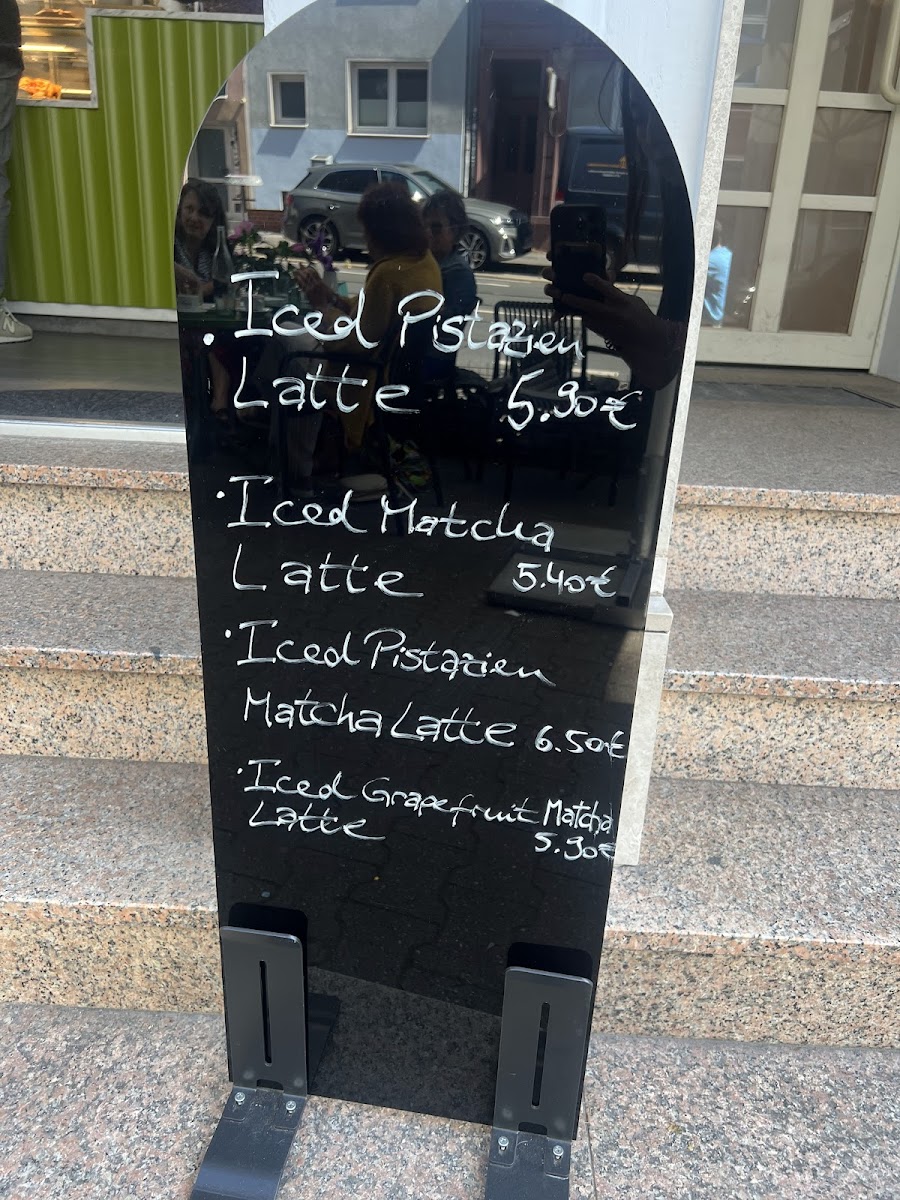 . Iced Pistazien
Latte 5.90€
· Iced Matcha
Latte 5.40€
· Iced Pistazien
Matcha Latte 6.50€
· Iced Grapefruit Matcha
Latte 5.90€